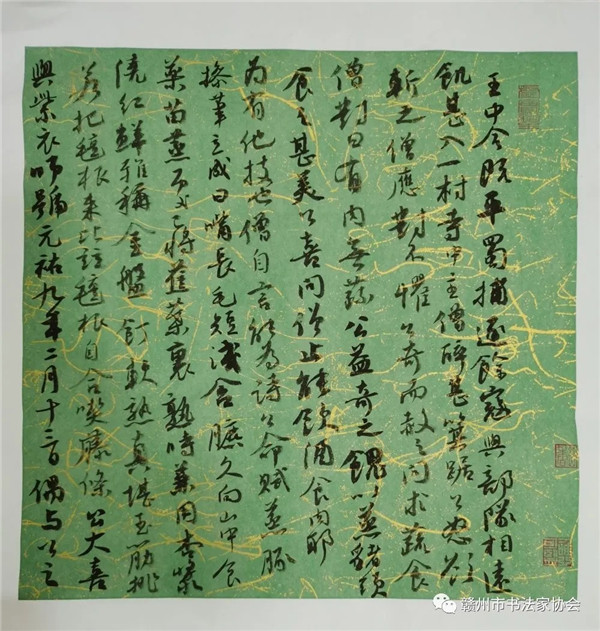 王中令既平蜀捕逐餘寇與部隊相遠
飢甚入一村寺中主僧醉甚箕踞公怒欲
斬之僧應對不懼公奇而赦之問求蔬食
僧對曰有肉無蔬公益奇之餽以蒸豬頭
食之甚美公喜問止能飲酒食肉耶
为有他技也僧自言能為詩公命賦蒸豚
操筆立成曰嘴長毛短淺含膘久向山中食
藥苗蒸處已將蕉葉裹熟時兼用杏漿
澆紅鮮雅稱金盤飣軟熟真堪玉筯挑
若把氊根來比並氊根自合喫藤條公大喜
與紫衣師號元祐九年二月十三日偶与公之
赣州市书法家协会